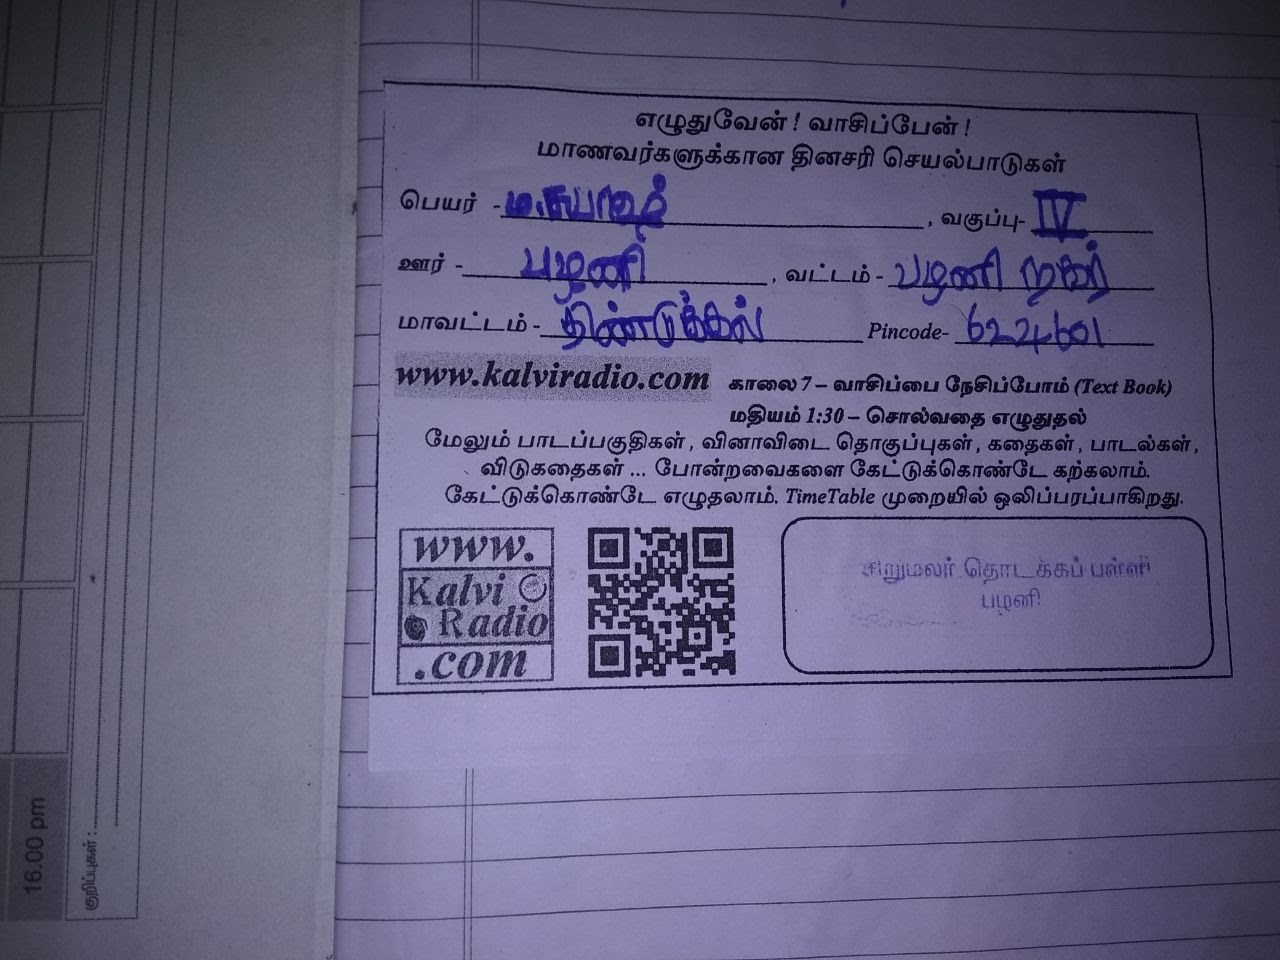 எழுதுவேன் ! வாசிப்பேன் !
மாணவர்களுக்கான தினசரி செயல்பாடுகள்
பெயர் - , வகுப்பு- IV
ஊர் - பழனி , வட்டம் - பழனி நகர்
மாவட்டம் - திண்டுக்கல் Pincode- 624601
www.kalviradio.com காலை 7 – வாசிப்பை நேசிப்போம் (Text Book)
மதியம் 1:30 – சொல்வதை எழுதுதல்
மேலும் பாடப்பகுதிகள் , வினாவிடை தொகுப்புகள் , கதைகள் , பாடல்கள் ,
விடுகதைகள் ... போன்றவைகளை கேட்டுக்கொண்டே கற்கலாம்.
கேட்டுக்கொண்டே எழுதலாம். TimeTable முறையில் ஒலிப்பரப்பாகிறது.
www.
Kalvi
Radio
.com
சிறுமலர் தொடக்கப் பள்ளி
பழனி
16.00 pm
குறிப்புகள் :